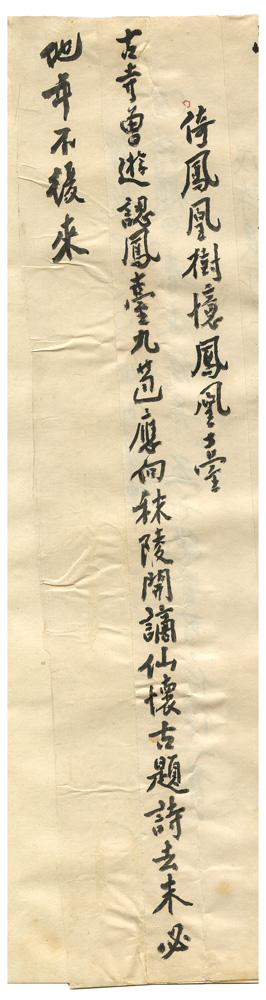 倚鳳凰樹懷鳳凰臺
古寺曾遊認鳳臺九苞應向秣陵開謫仙懷古題詩去未必
他年不緩來